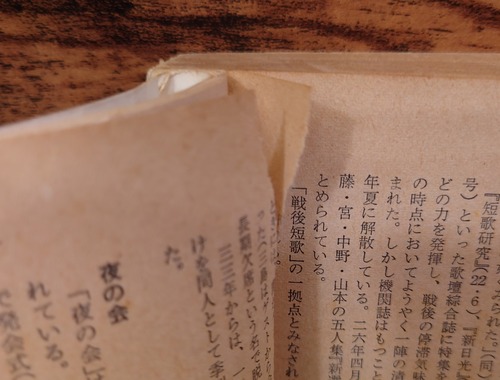 られた。(同)
『短歌研究』(22・6)、『新日光』
号)といった歌壇綜合誌に特集を
どの力を発揮し、戦後の停滞気
の時点においてようやく一陣の清
まれた。しかし機関誌はもつこと
年夏に解散している。二六年四月
藤・宮・中野・山本の五人集『新
とめられている。
「戦後短歌」の一拠点とみなれ
長期欠席という名で
三三年からは、一
けを間人として季
た。
夜の会
「夜の会」
れている。
で発会式(